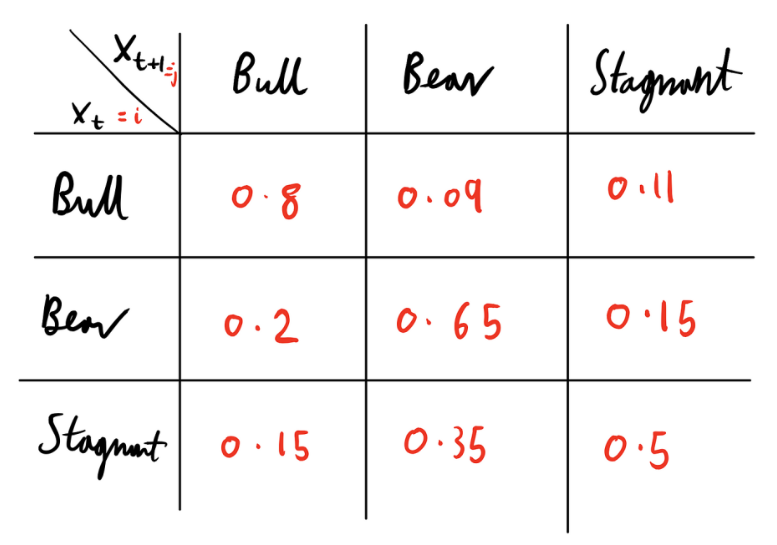 X_{t+1=j} Bull Bear Stagnant
X_t = i
Bull 0.8 0.09 0.11
Bear 0.2 0.65 0.15
Stagnant 0.15 0.35 0.5